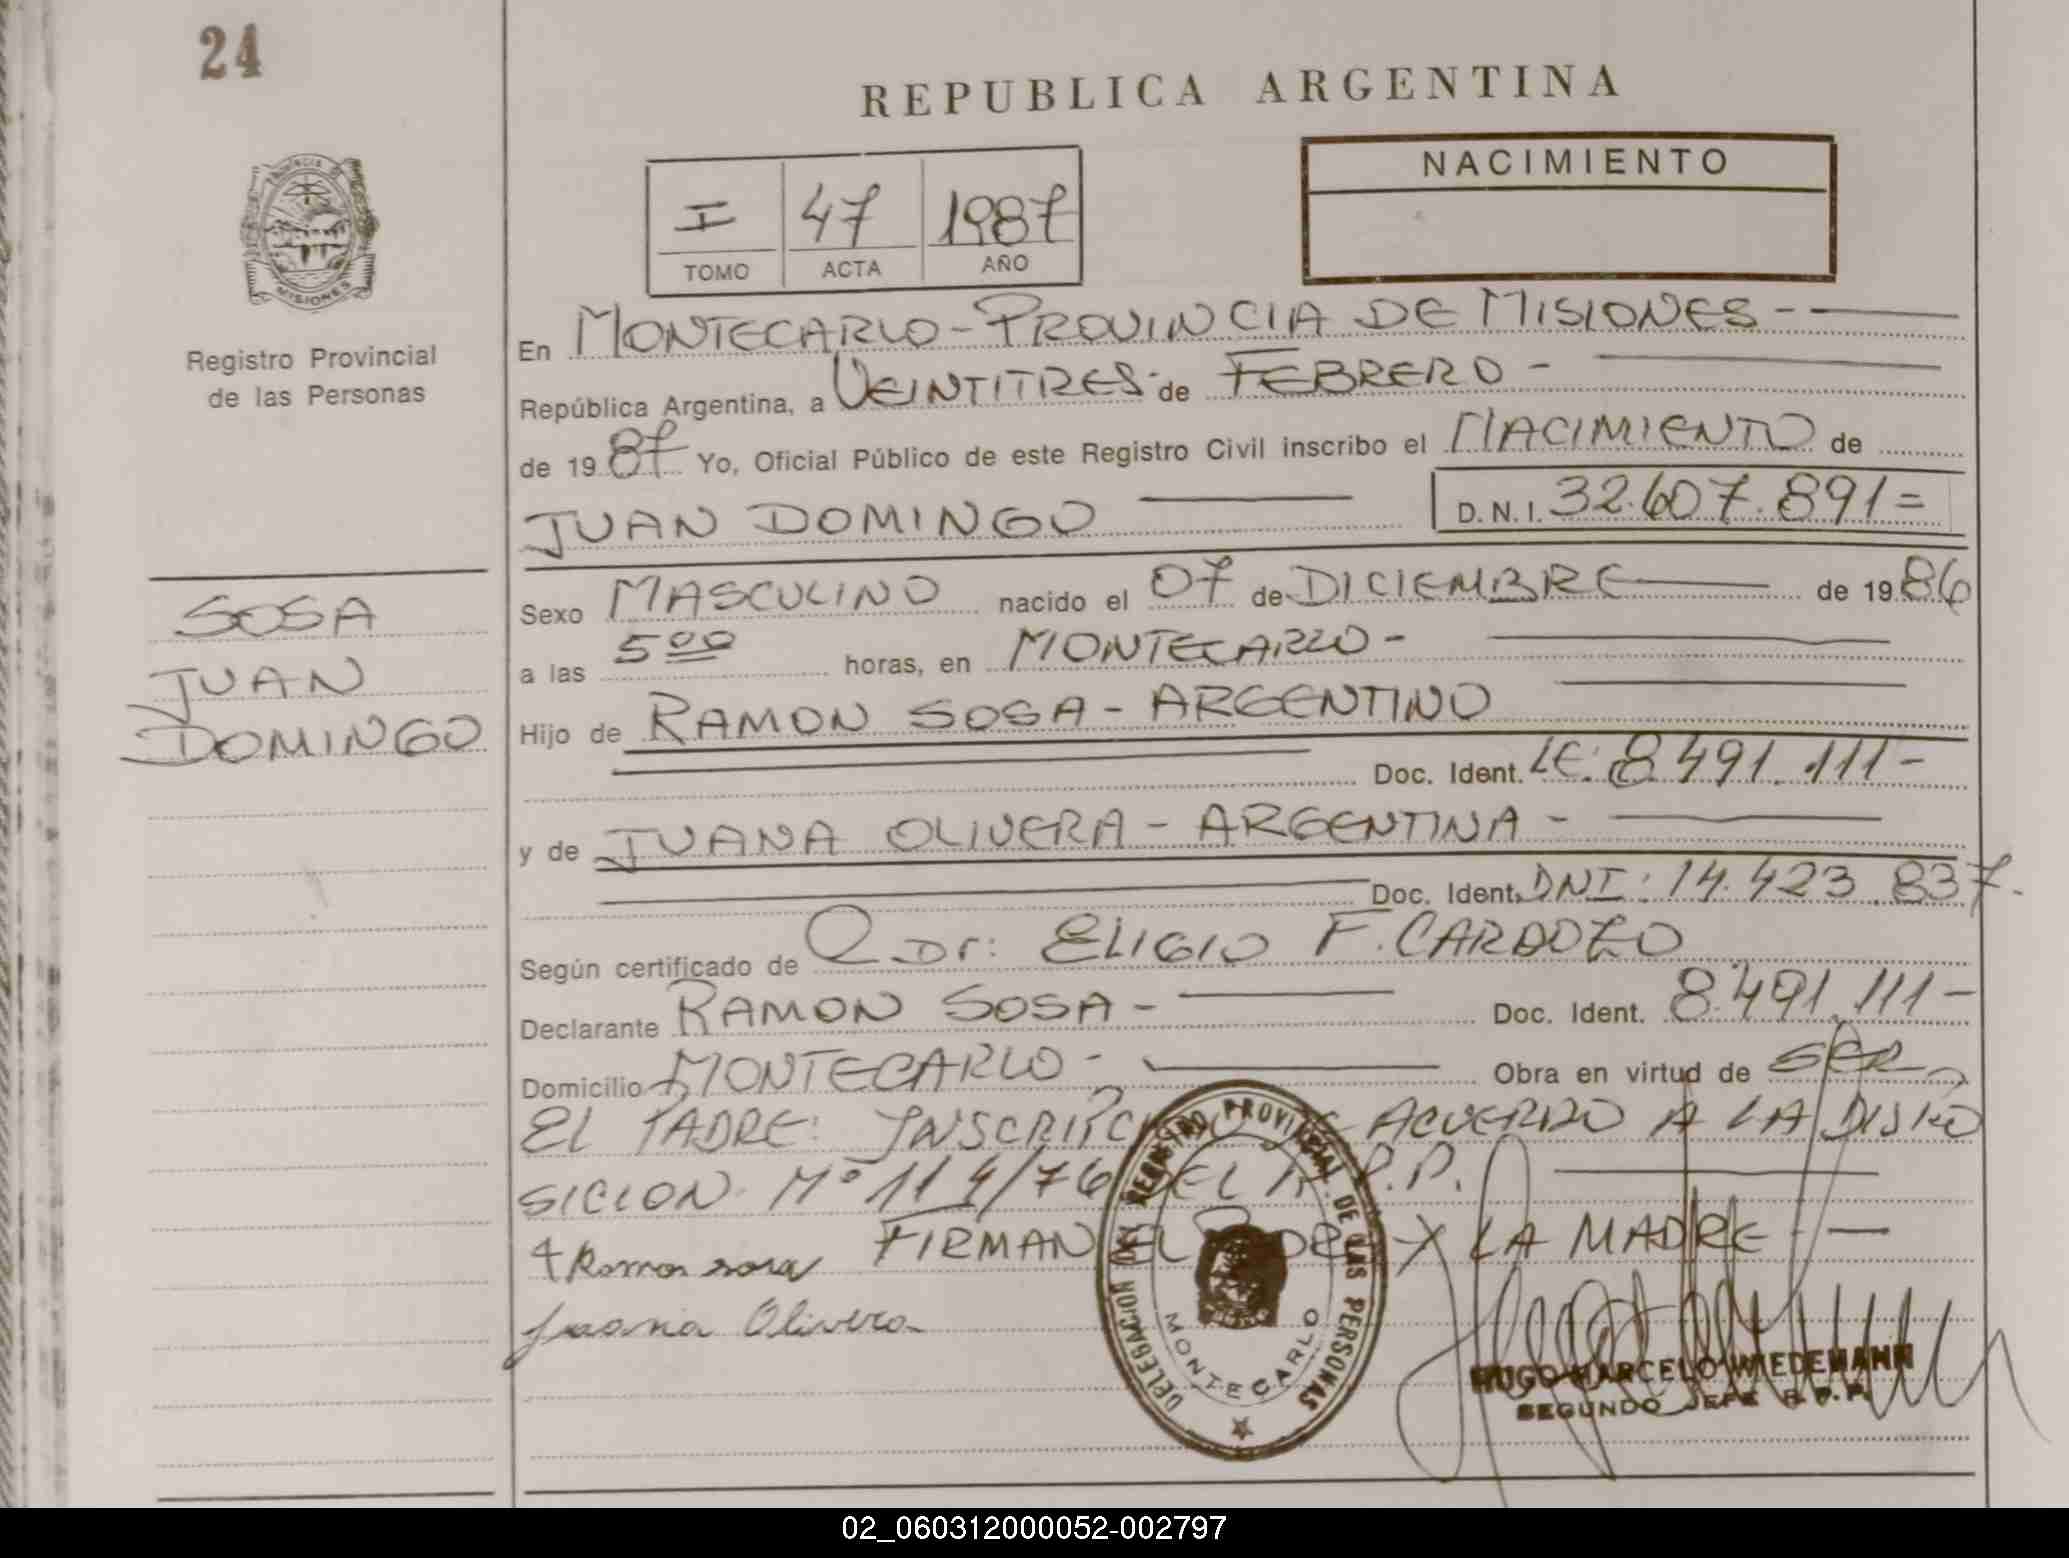 24
REPUBLICA ARGENTINA
NACIMIENTO
I 47 1987
TOMO ACTA AÑO
PROVINCIA DE MISIONES
Registro Provincial
de las Personas
SOSA
JUAN
DOMINGO
En MONTECARLO - PROVINCIA DE MISIONES - -
República Argentina, a VEINTITRES - de FEBRERO -
de 1987 Yo, Oficial Público de este Registro Civil inscribo el NACIMIENTO de
JUAN DOMINGO D.N.I. 32.607.891=
Sexo MASCULINO nacido el 07 de DICIEMBRE de 1986
a las 5 00 horas, en MONTECARLO -
Hijo de RAMON SOSA - ARGENTINO
Doc. Ident. LE: 8.491.111 -
y de JUANA OLIVERA - ARGENTINA -
Doc. Ident. DNI: 14.423.837.
Según certificado de Dr: ELIGIO F. CARDOZO
Declarante RAMON SOSA - Doc. Ident. 8.491.111 -
Domicilio MONTECARLO - Obra en virtud de SER
EL PADRE: INSCRIPC ACUERDO A LA DISPO
SICION Nº 114/76 DEL R.P.P.
FIRMAN EL Y LA MADRE -
+ Ramon sosa
Juana Olivera
DELEGACION DEL REGISTRO PROVINCIAL DE LAS PERSONAS
MONTECARLO
HUGO MARCELO WIEDEMANN
SEGUNDO JEFE R.P.P.
02_060312000052-002797